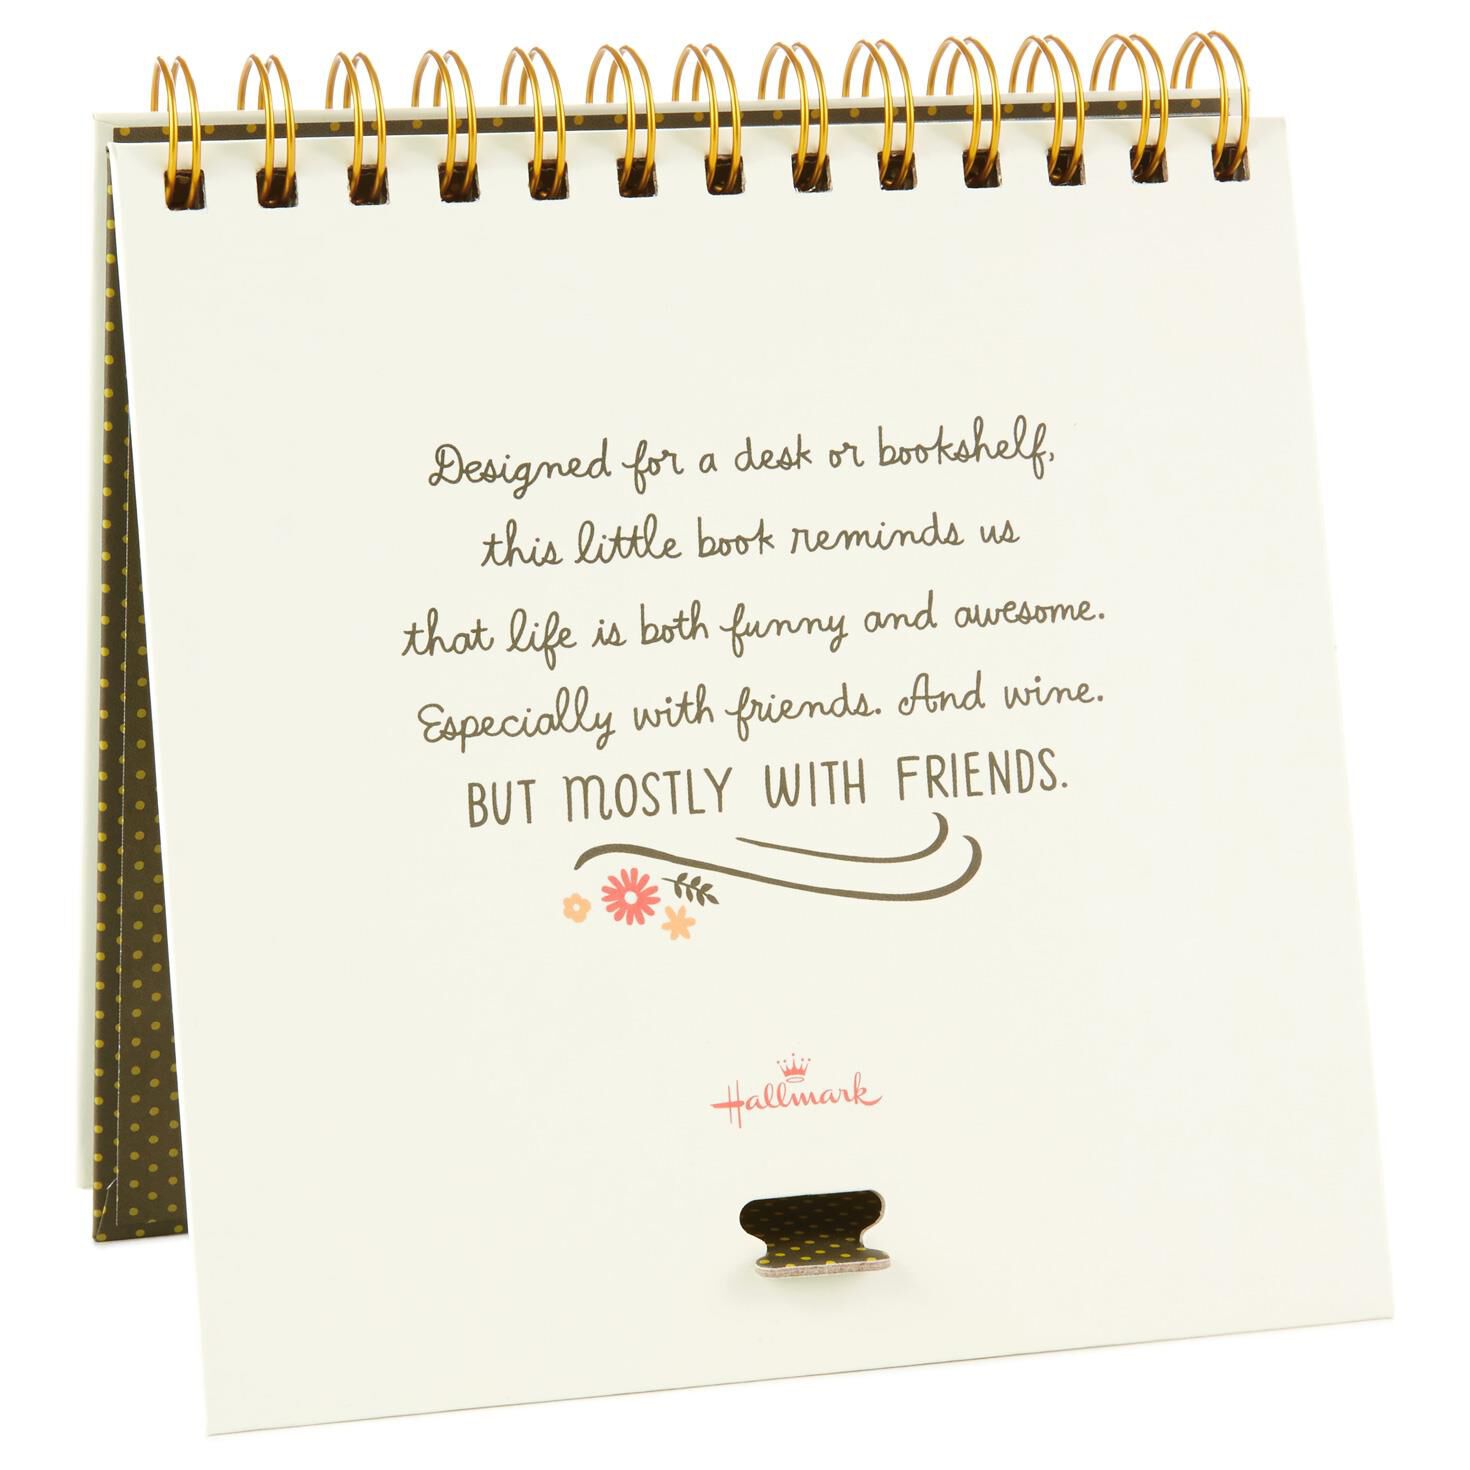 Designed for a desk or bookshelf,
this little book reminds us
that life is both funny and awesome.
Especially with friends. And wine.
BUT MOSTLY WITH FRIENDS.
Hallmark